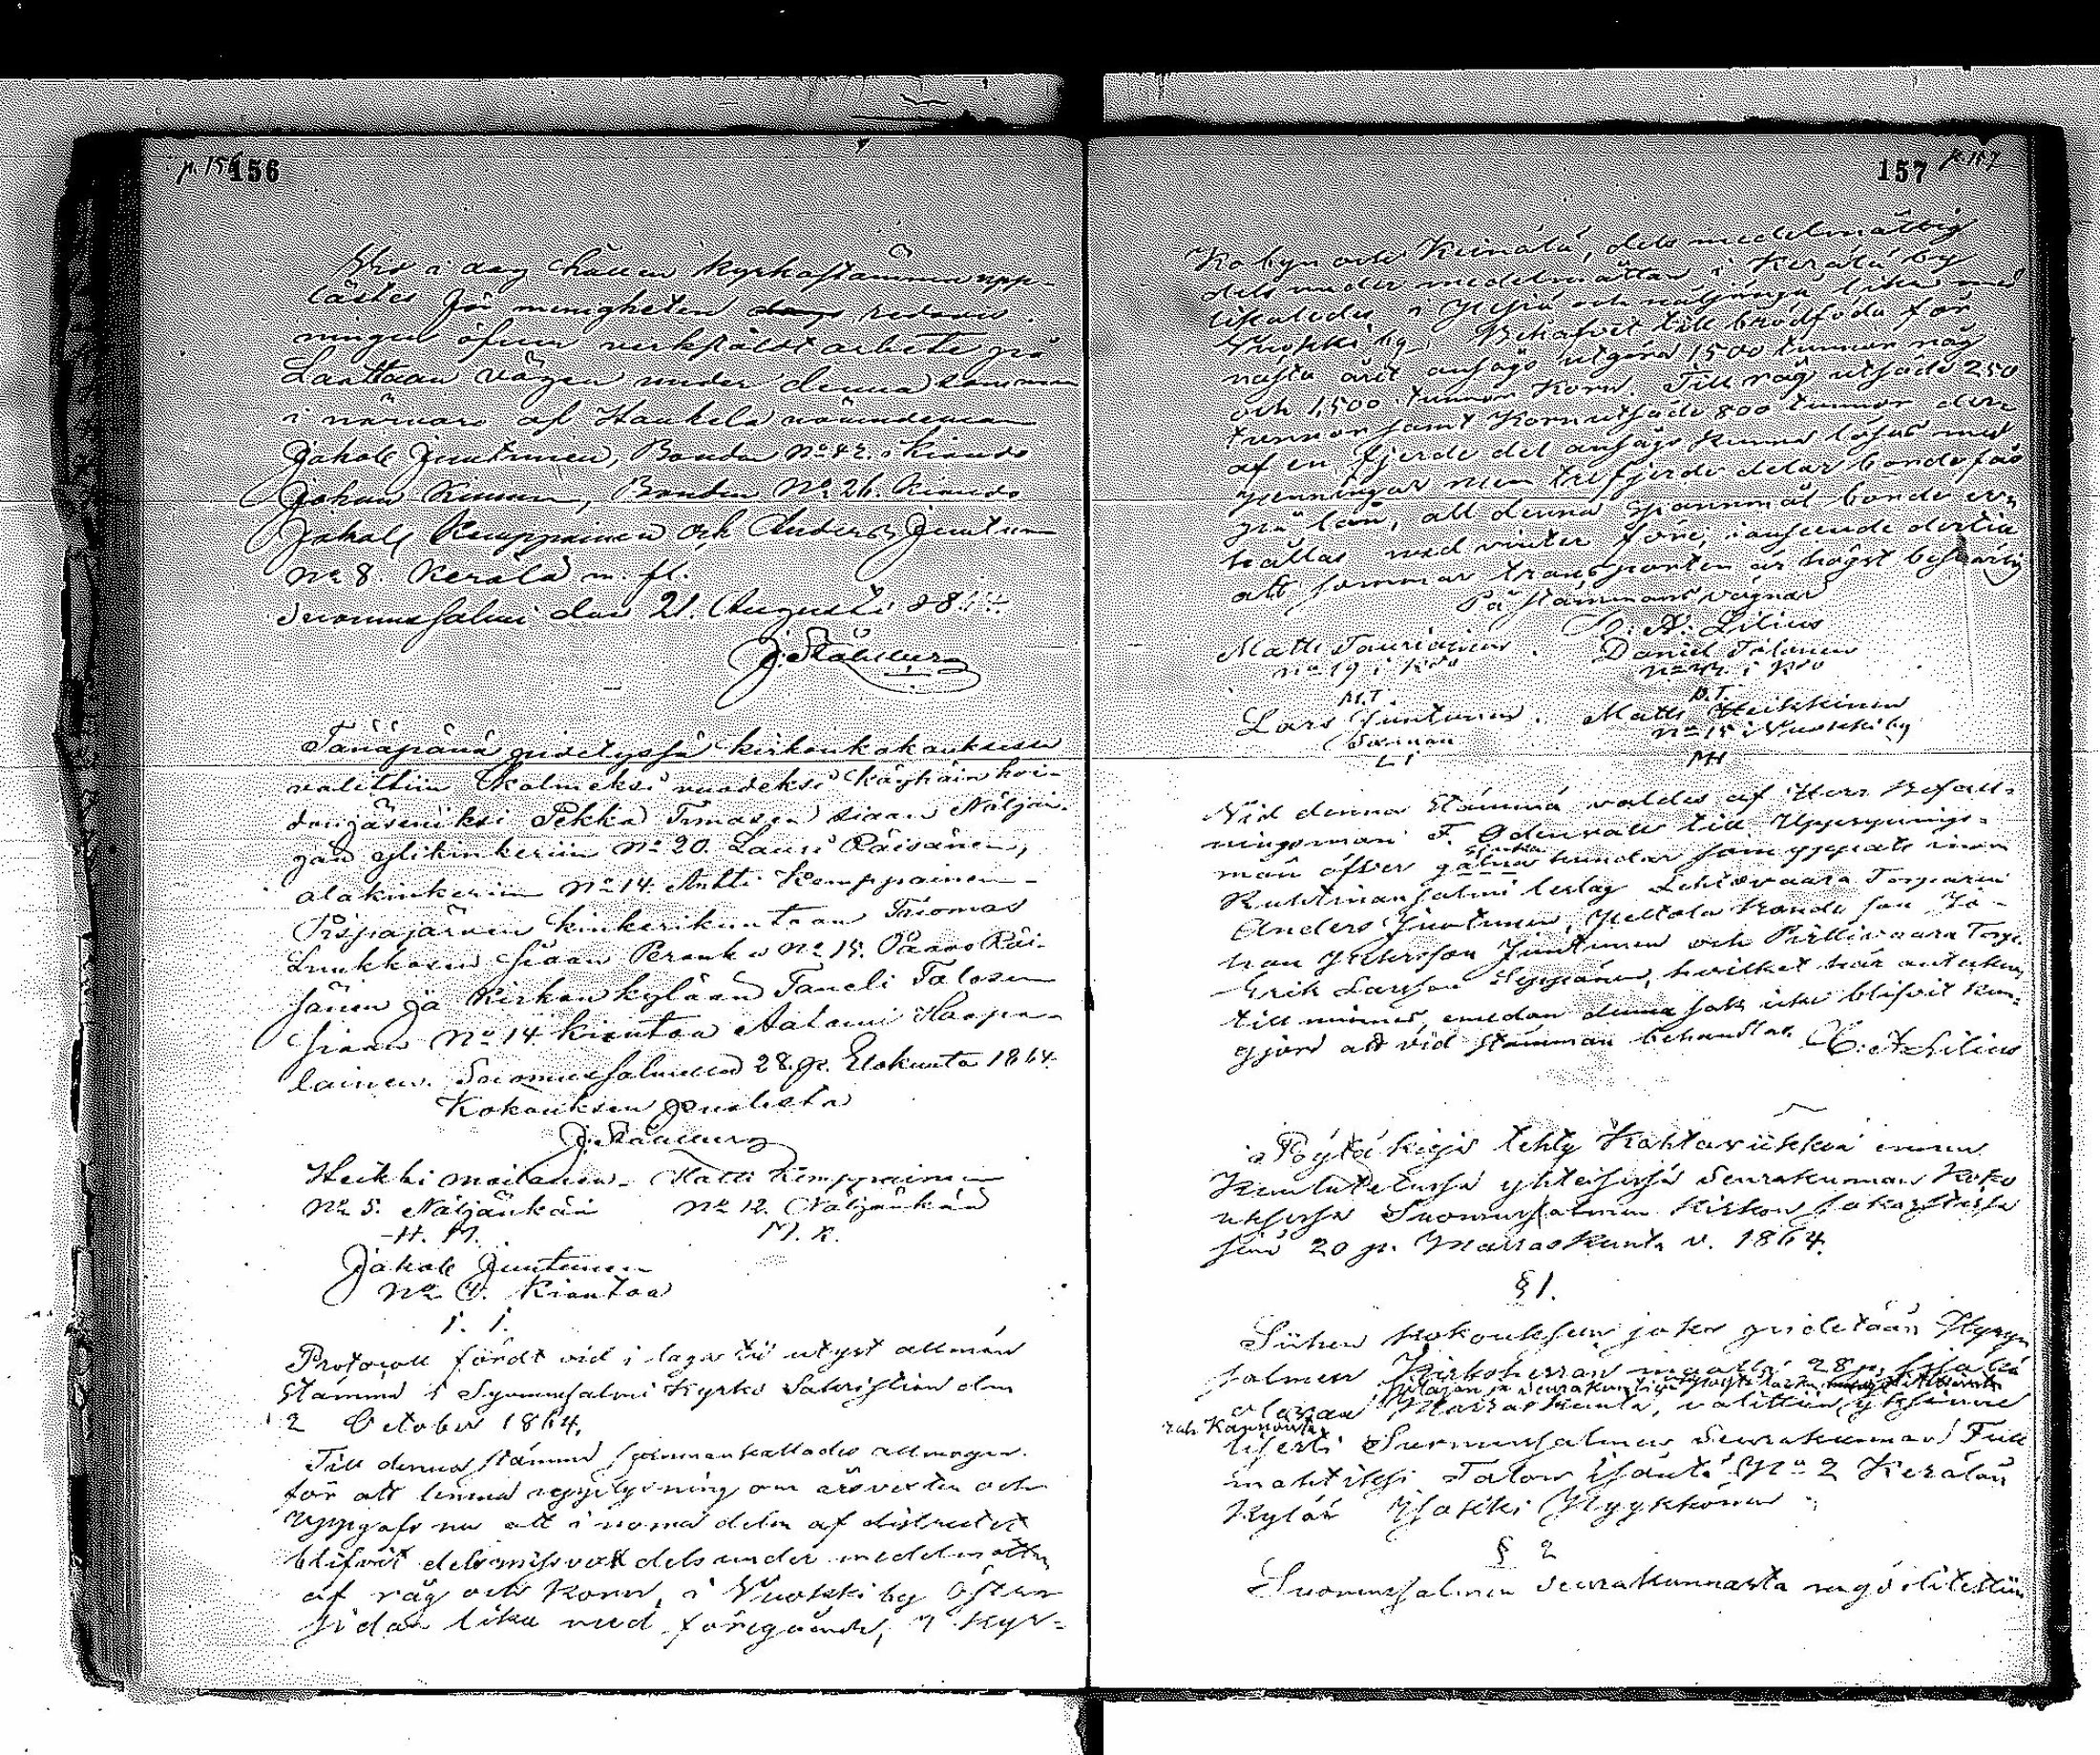 p. 156 156
Wid i dag hållen kyrkostämma upp-
lästes för menigheten redovis-
ningen öfver verkstäldt arbete på
Lauttaan vägen under denna sommar
i närvaro af Haukela nämndeman
Jakob Juntunen, Bonden No 42. Kiando
Johan Kinnunen, Bonden No 26. Kiando
Jakob Kemppainen och Anders Juntunen
No 8. Kerälä m. fl.
Suomussalmi den 21. Augusti 1864.
J. Ståhlberg
Tänäpänä pidetyssä kirkonkokouksessa
valittiin kolmeksi vuodeksi köyhäin hoi-
don jäseniksi Pekka Timosen siaan Näljän-
gän ylikinkeriin No 20. Lauri Räisänen,
alakinkeriin No 14. Antti Kemppainen -
Pispajärven kinkerikuntaan Thomas
Luukkosen siaan Peranka No 15. Paavo Räi-
sänen ja kirkonkylään Taneli Talosen
siaan No 14 kiantoa Aatami Haapa-
lainen. Suomussalmella 28. p. Elokuuta 1864.
Kokouksen puolesta
J. Ståhlberg
Heikki Moilanen. Matti Kemppainen
No 5. Näljänkää No 12. Näljänkää
H. M. M. K.
Jakob Juntunen
No Kiantoa
J. J.
Protocoll fördt vid i laga tid utlyst allmän
stämma i Suomussalmi Kyrko Sakristian den
2 October 1864.
Till denna stämma sammankallades allmogen
för att lemna upplysning om årsvexten och
uppgafs nu att i norra delen af districtet
blifvit dels missvext dels under medelmåttan
af råg och korn, i Vuokki by Östra
sidan lika med föregående, i Kyr-
157 p. 157
ko byn och Keinälä, dels medelmåttig
dels under medelmåttan i Kerälä by
likaledes i och Näljängä lika med
Vuokki by. Behofvet till brödföda för
nästa året ansågs utgöra 1500 tunnor råg
och 1,500 tunnor Korn. Till råg utsäde 250
tunnor samt Korn utsäde 800 tunnor der-
af en fjerde del ansågs kunna lösas med
penningar men tre fjerde delar borde fås
på lån, att denna spannmål borde er-
hållas med vinter före, i anseende dertill
att sommar transporten är högst besvärlig
På Stämmans vägnar
A. Lilius
Matts Tauriainen. Daniel Talonen
No 19 i Kdo No i Kdo
M.T. D.T.
Lars Juntunen. Matts Heikkinen
No 15 i Vuokki by
L J MH
Vid denna Stämma valdes af Herr Befall-
ningsman F. Ödenvall till Uppsynings-
män öfver
sjuka
galna hundar som yppats inom
Ruhtinansalmi lextag Lehtovaara Torparen
Anders Juntunen, Peltola bonde son Jo-
han Petersson Juntunen och Pirttivaara Torp.
Erik Larsson Seppänen, hvilket här antecknas
till minnes, emedan denna sak icke blifvit kun-
gjord att vid stämman behandlas. A Lilius
Pöytäkirja tehty Kahta viikkoa ennen
kuulutetussa yhteisessä Seurakunnan Koko
uksessa Suomussalmen Kirkon sakastissa
sinä 20 p. Marraskuuta v. 1864.
§ 1.
Siihen kokouksen joka pidetään Hyryn
salmen Kirkoherran maalla 28 p.
olevaa Marraskuuta, valittiin yksimie
lisesti Suomussalmen Seurakunnan Full
mahtiksi Talon isäntä No 2 Kerälän
Kylää Isakki Hyykkönen
§ 2
Suomussalmen Seurakunnasta